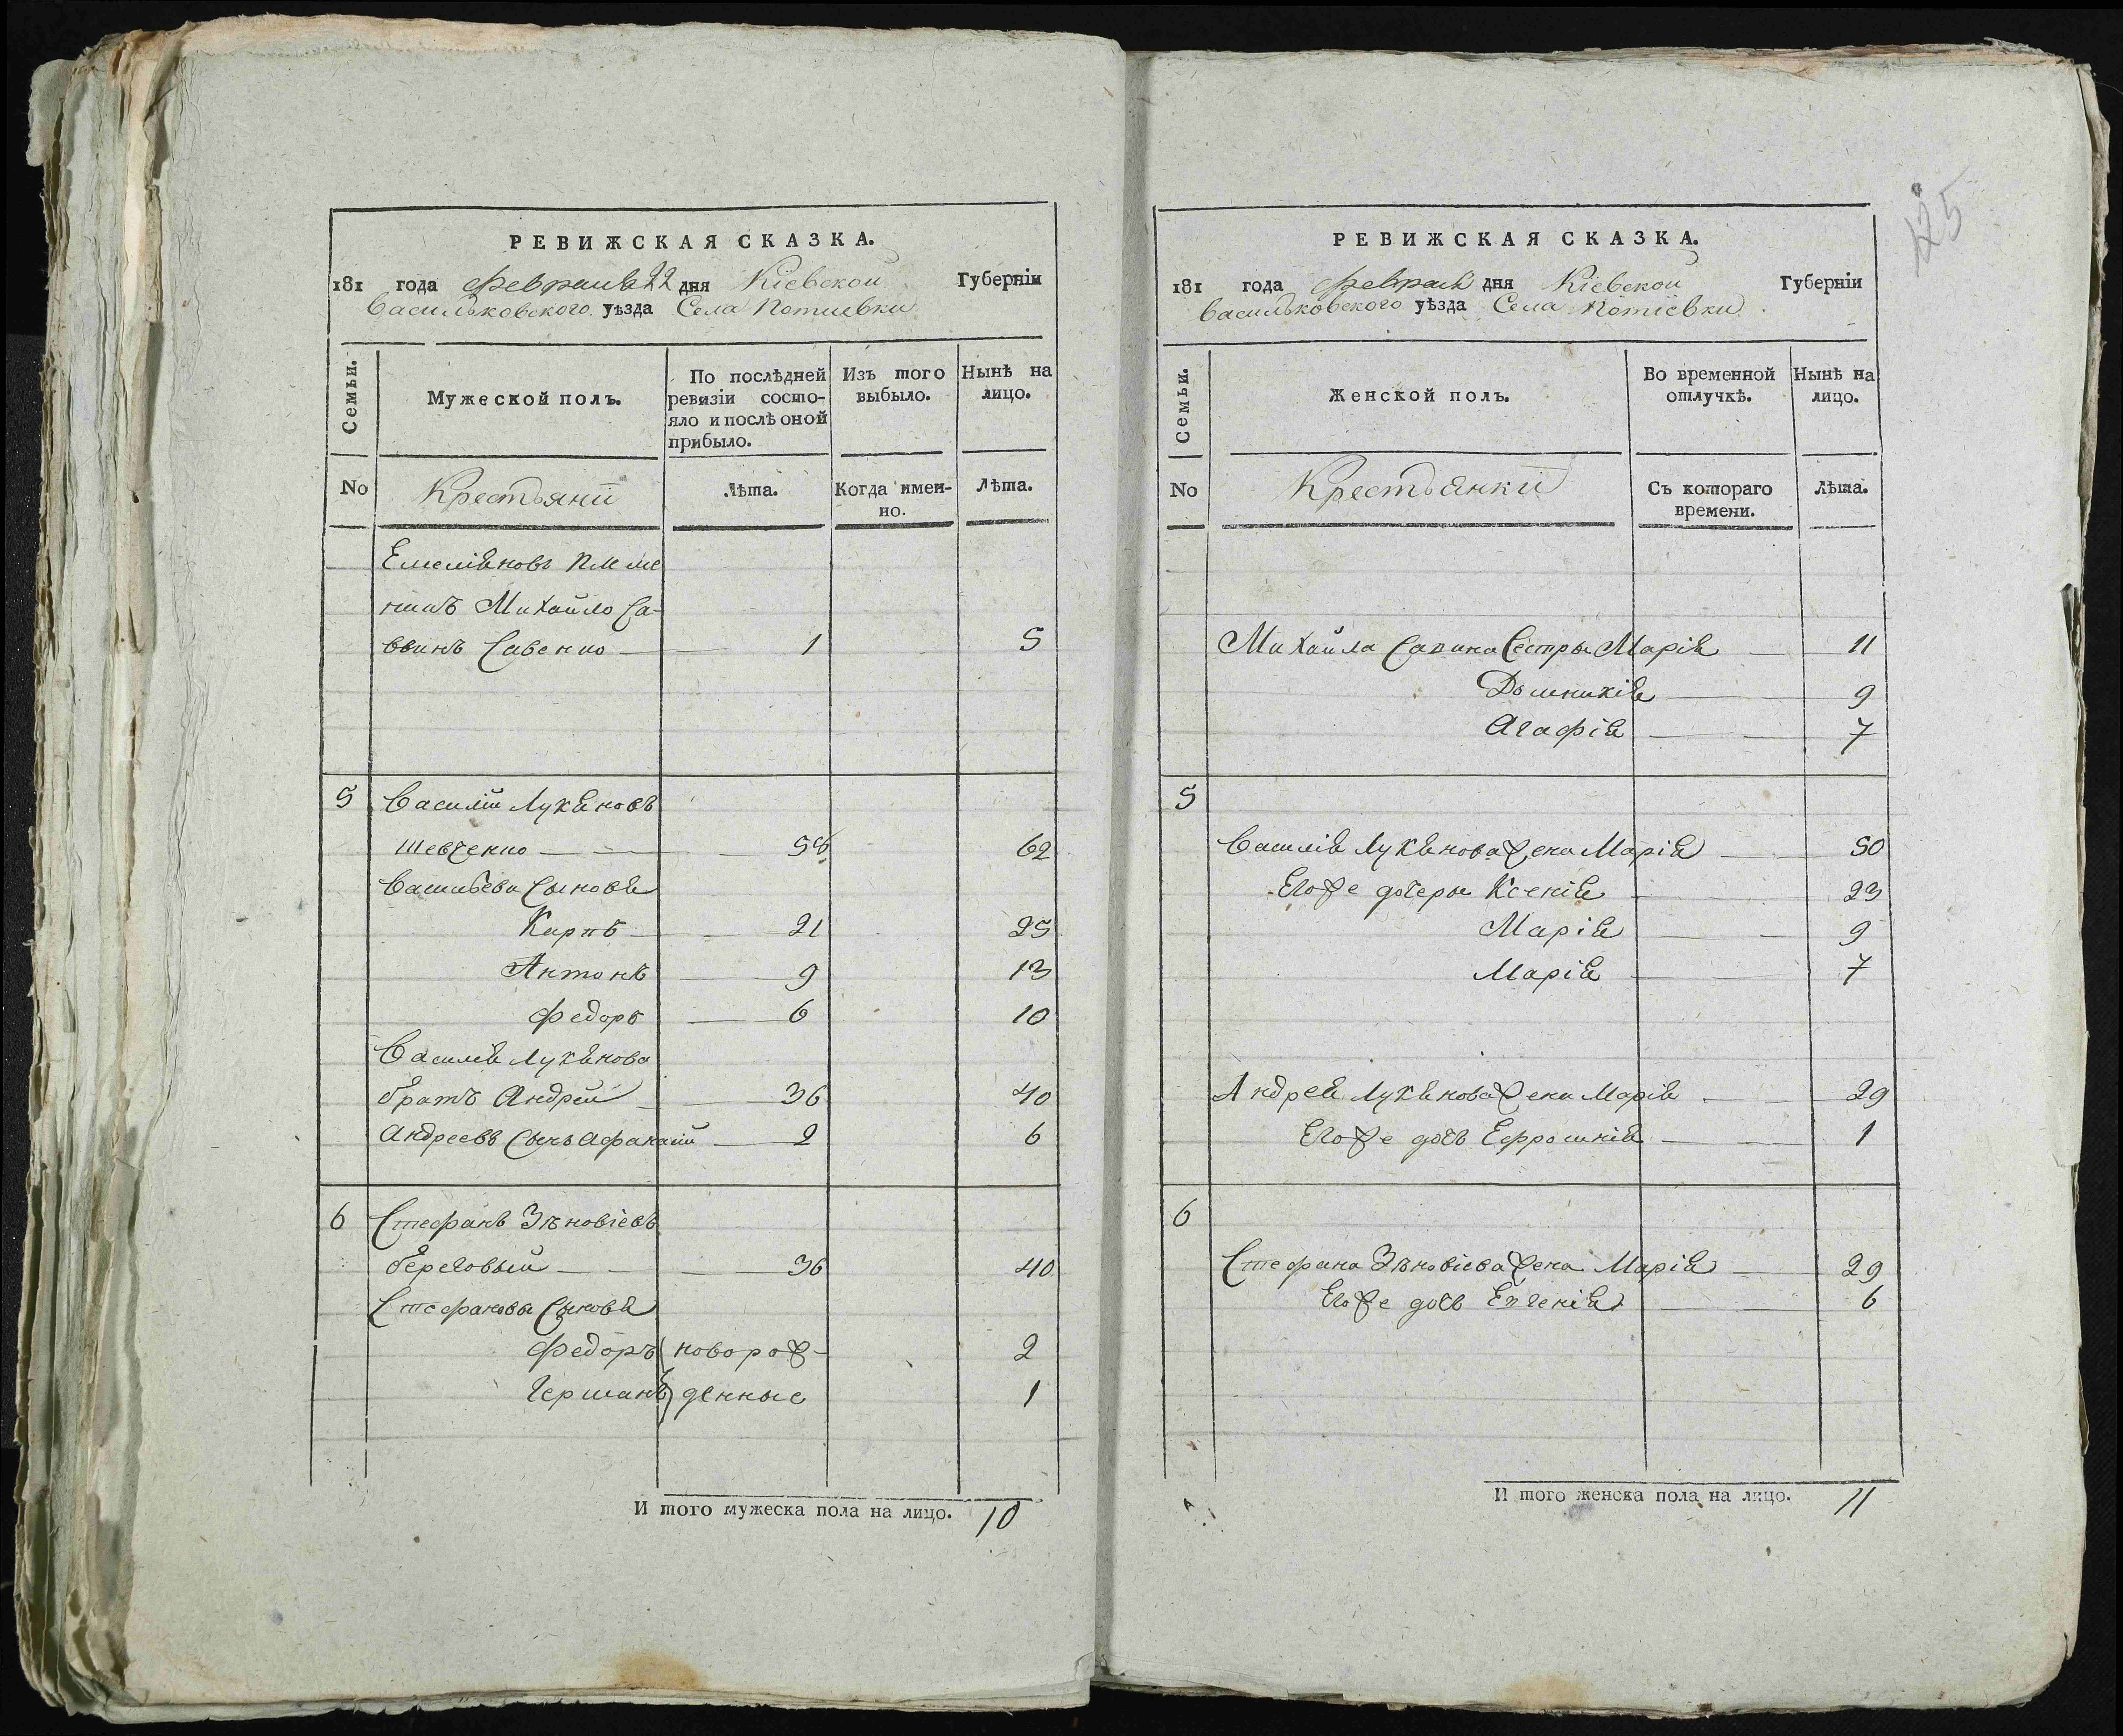 РЕВИЖСКАЯ СКАЗКА.
181 года февраля 22 дня Кіевской Губерніи
Васильковского уѣзда Села Потиевки
Семьи. Мужеской полъ. По послѣдней ревизіи состояло и послѣ оной прибыло. Изъ того выбыло. Нынѣ на лицо.
No Крестьяни Лѣта. Когда имен-но. Лѣта.
Емеліяновъ племе
никъ Михайло Са-
ввинъ Савенко 1 5
5 Василій Лукяновъ
шевченко 58 62
Васильевы Сыновя
Карпъ 21 25
Антонъ 9 13
федоръ 6 10
Василія Лукянова
братъ Андрей 36 40
Андреевъ Сынъ Афанасій 2 6
6 Стефанъ Зѣновіевъ
береговый 36 40
Стефановы Сыновя
федоръ новорож- 2
Германъ денные 1
И того мужеска пола на лицо. 10
125
РЕВИЖСКАЯ СКАЗКА.
181 года февраля дня Кіевской Губерніи
Васильковского уѣзда Села Потіевки
Семьи. Женской полъ. Во временной отлучкѣ. Нынѣ на лицо.
No Крестьянки Съ котораго времени. Лѣта.
Михайла Савина Сестры Марія 11
Домникія 9
Агафія 7
5
Василія Лукянова жена Марія 50
Егоже дочеры Ксенія 23
Марія 9
Марія 7
Андрея Лукянова жена Марія 29
Егоже дочь Ефросинія 1
6
Стефана Зѣновіева жена Марія 29
Егоже дочь Евгенія 6
И того женска пола на лицо. 11